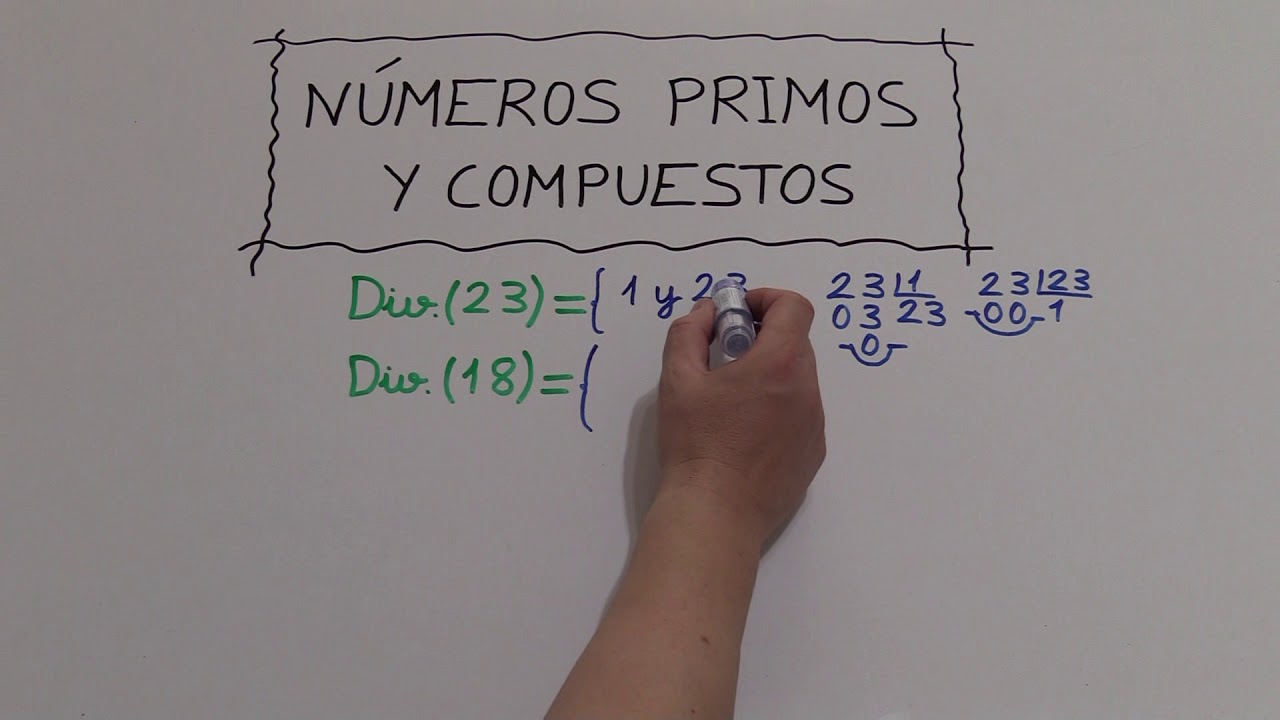 NÚMEROS PRIMOS
Y COMPUESTOS
Div.(23)={ 1 y 23
Div.(18)={
23 | 1
03 23
0
23 | 23
00 1